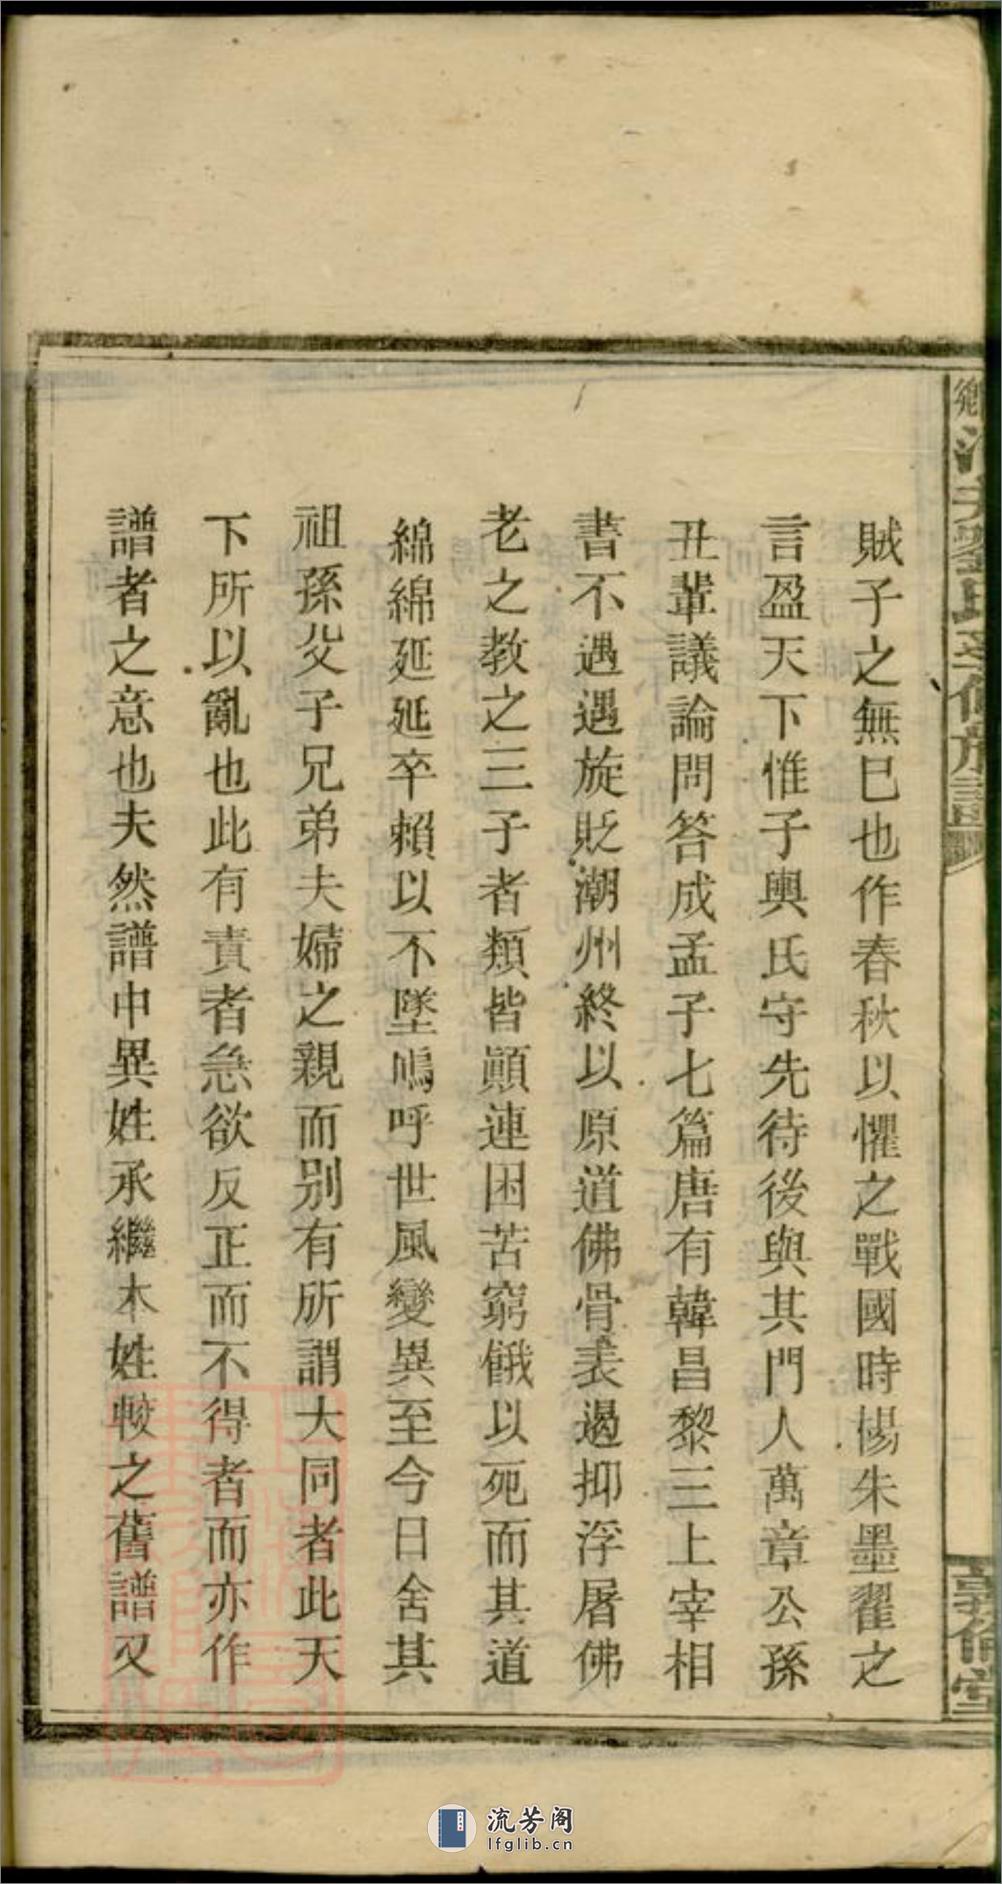 賊子之無已也作春秋以懼之戰國時楊朱墨翟之
言盈天下惟子輿氏守先待後與其門人萬章公孫
丑輩議論問答成孟子七篇唐有韓昌黎三上宰相
書不遇遇旋貶潮州終以原道佛骨表遏抑浮屠佛
老之教之三子者類皆顚連困苦窮餓以死而其道
綿綿延延卒賴以不墜嗚呼世風變異至今日舍其
祖孫父子兄弟夫婦之親而別有所謂大同者此天
下所以亂也此有責者急欲反正而不得者而亦作
譜者之意也夫然譜中異姓承繼本姓較之舊譜又
敦倫堂
流芳阁
lfglib.cn